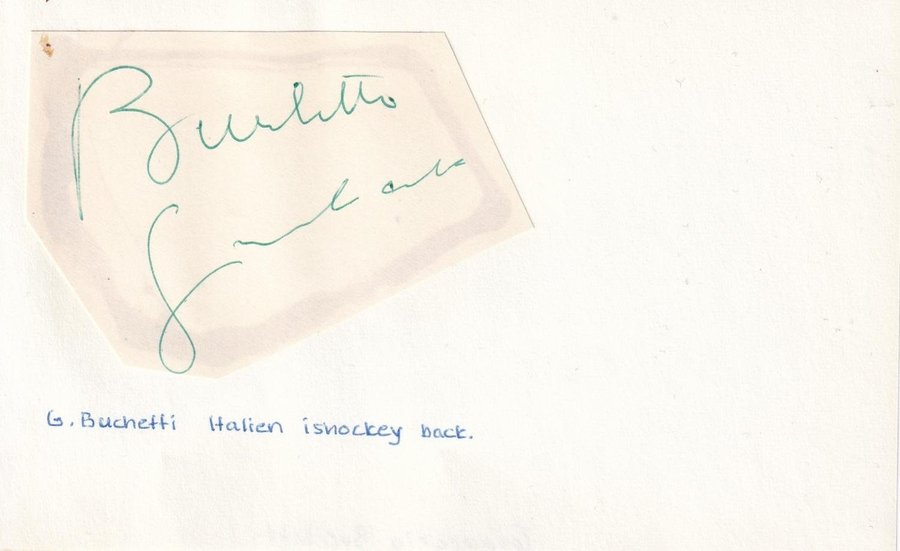 Bucchetti
G. Buchetti Italien ishockey back.